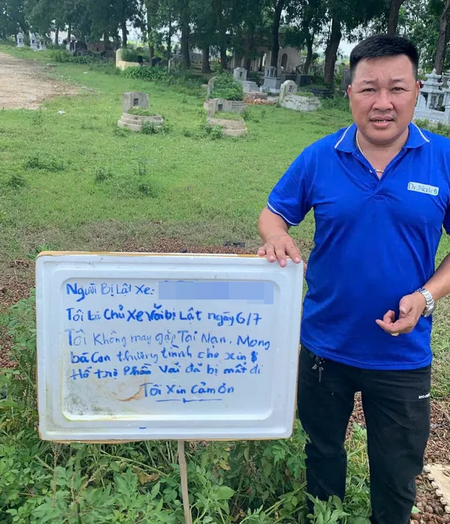 Người Bị Lật Xe:
Tôi Là Chủ Xe Vải bị Lật ngày 6/7
Tôi Không may gặp Tai Nạn. Mong
bà Con thương tình cho xin $
Hỗ trợ Phần Vải đã bị mất đi
Tôi Xin Cảm Ơn